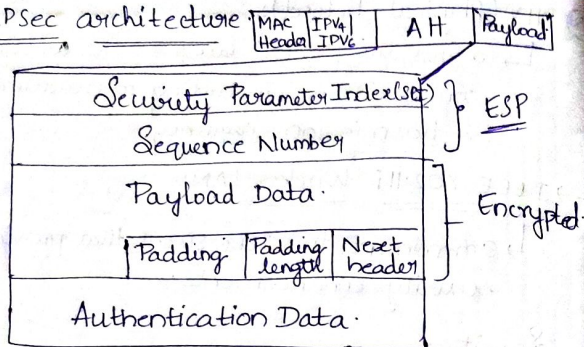 PSec architecture
MAC Header IPV4 IPV6 AH Payload
Security Parameter Index(
Sequence Number
ESP
Payload Data.
Encrypted.
Padding Padding length Next header
Authentication Data.